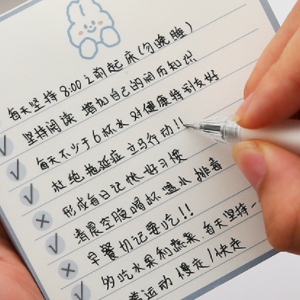 每天坚持 8:00之前起床(勿晚睡)
坚持阅读 增加自己的阅历知识
每天不少于6杯水 对健康特别友好
杜绝拖延症 立马行动!!
形成每日记账好习惯
清晨空腹喝杯温水 排毒
早餐切记要吃!!
多吃水果和蔬菜,每天坚持一
运动 慢走/快走